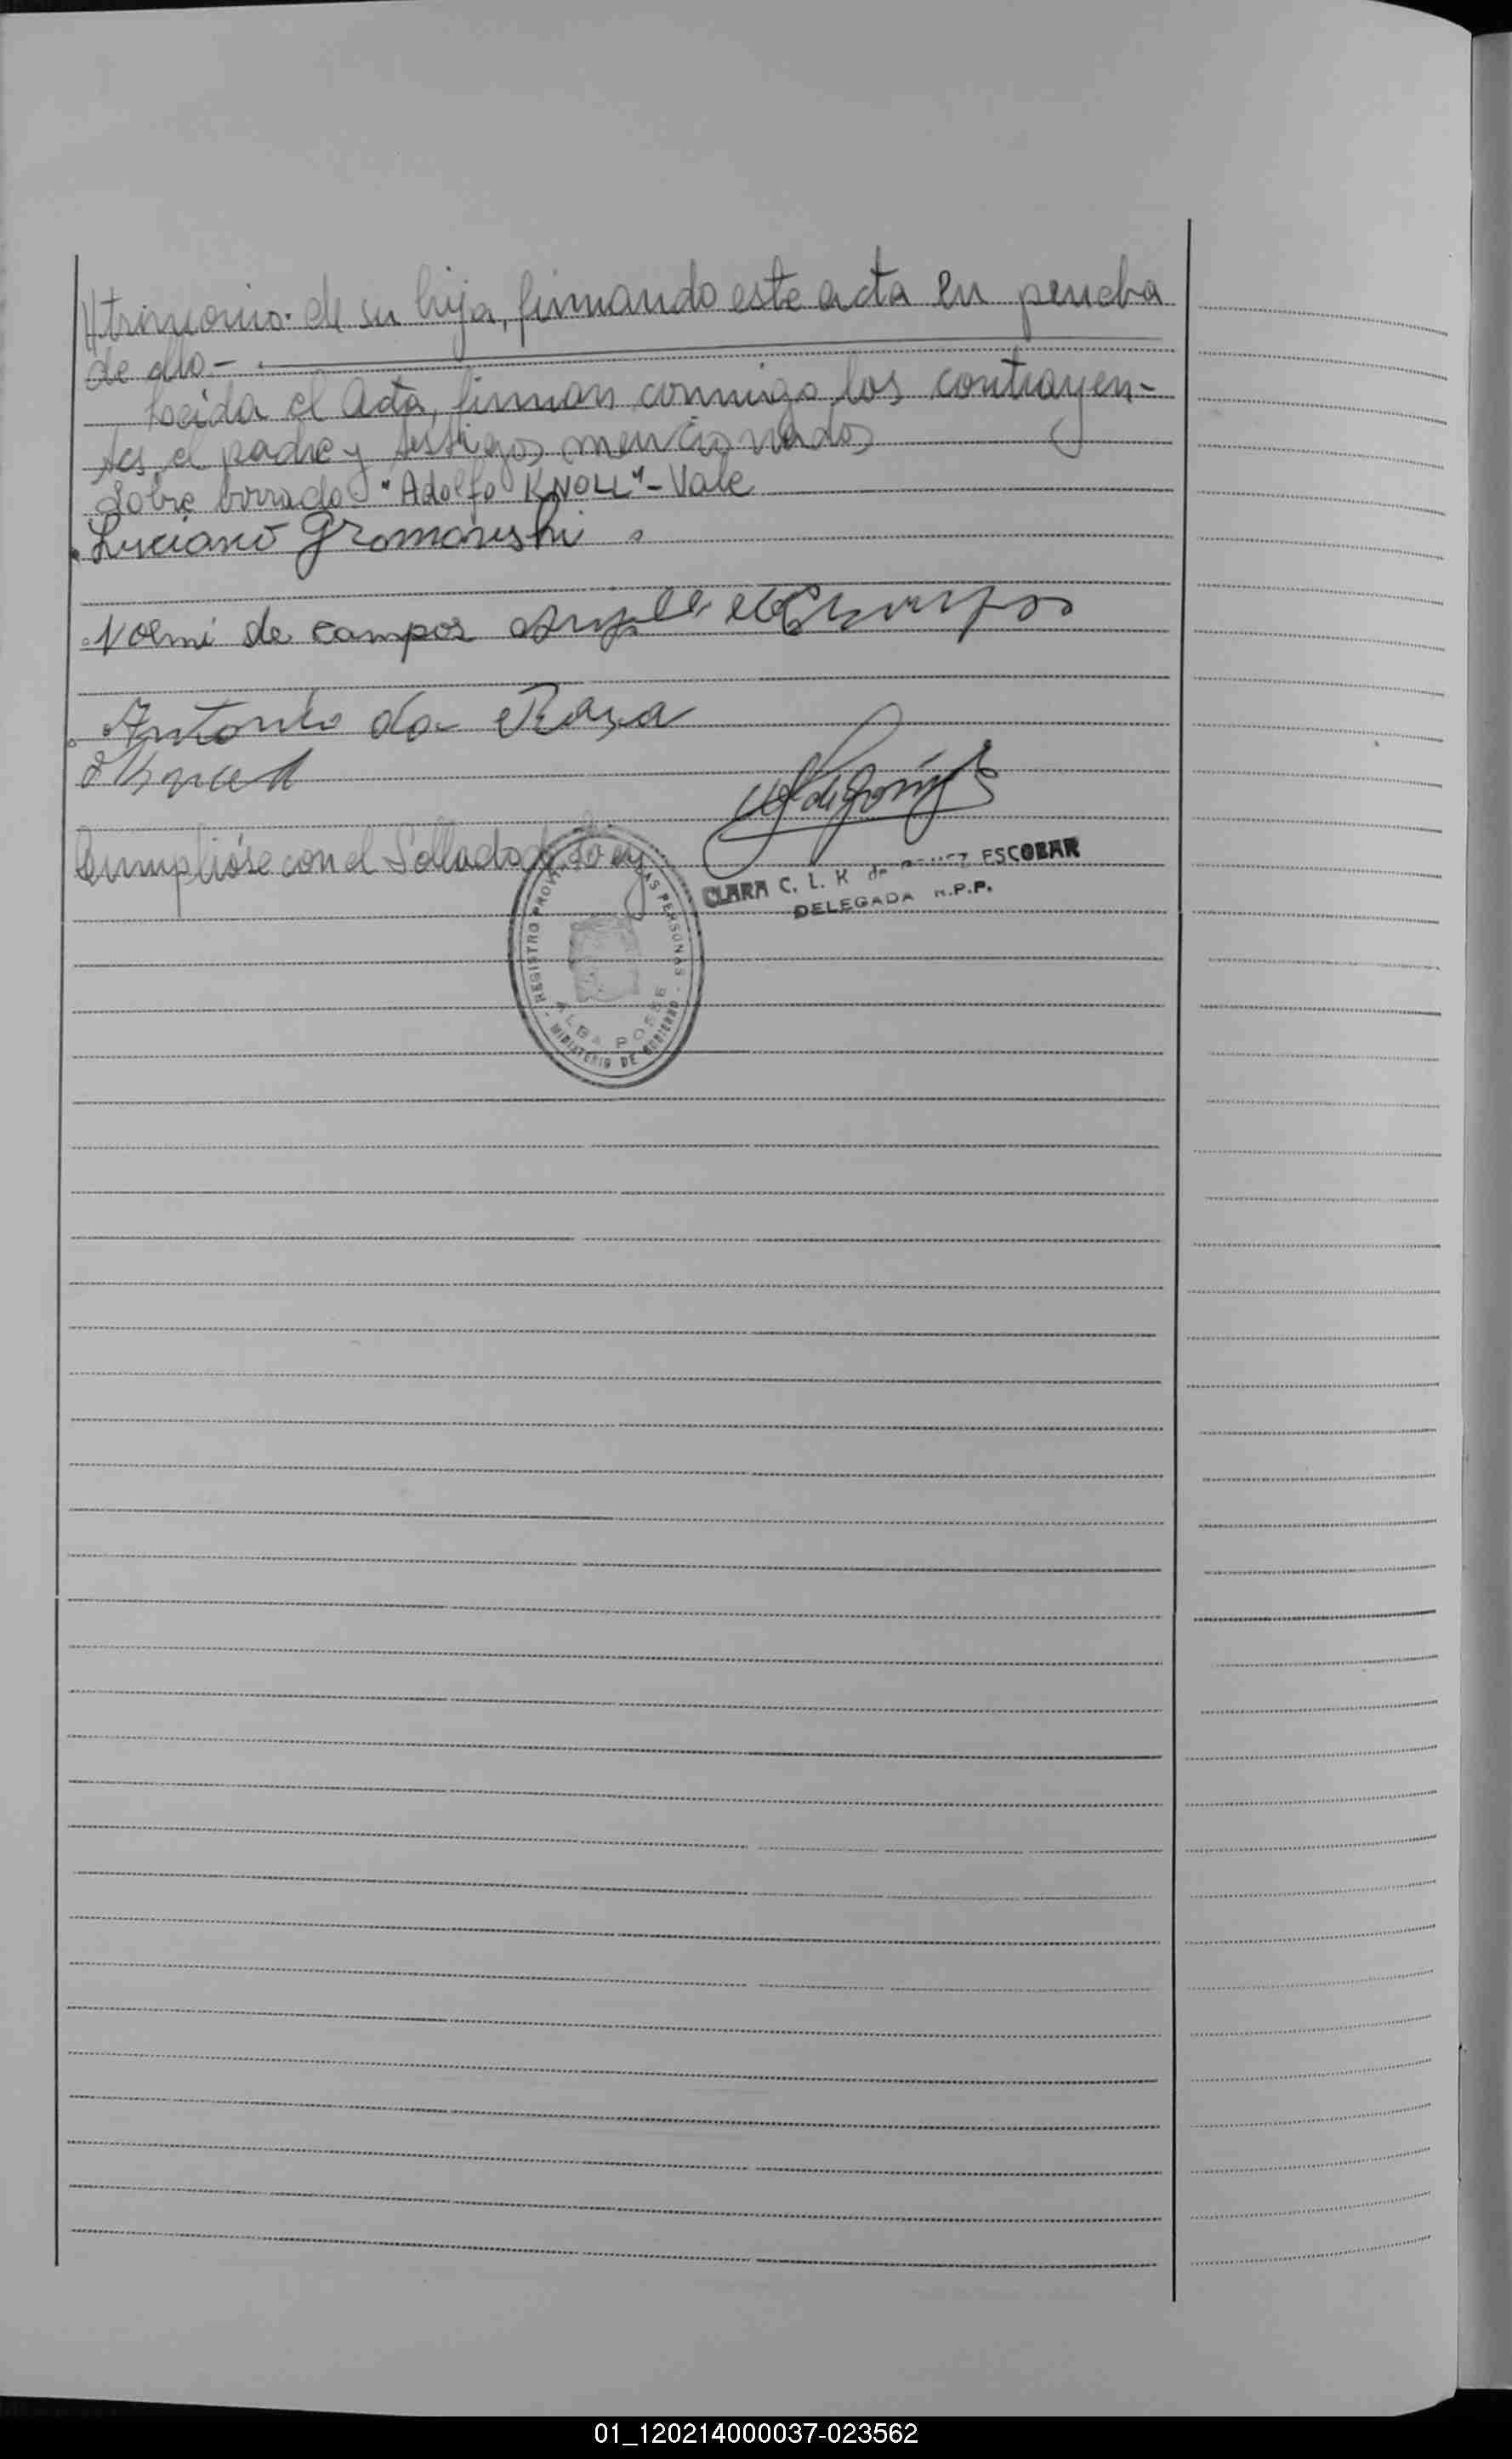 //trimonio de su hija, firmando este acta en prueba
de ello.-
Leida el Acta, firman conmigo los contrayen-
tes, el padre y testigos mencionados
Sobre borrado "Adolfo KNOLL"- Vale
Luciano Gromoveski
Noemi de campos
Antonio da Rosa
Cumplióse con el Sellado de Ley
CLARA C. L. K de ESCOBAR
DELEGADA R.P.P.
REGISTRO PROV LAS PERSONAS
ALBA POSSE
MINISTERIO DE GOBIERNO
01_120214000037-023562